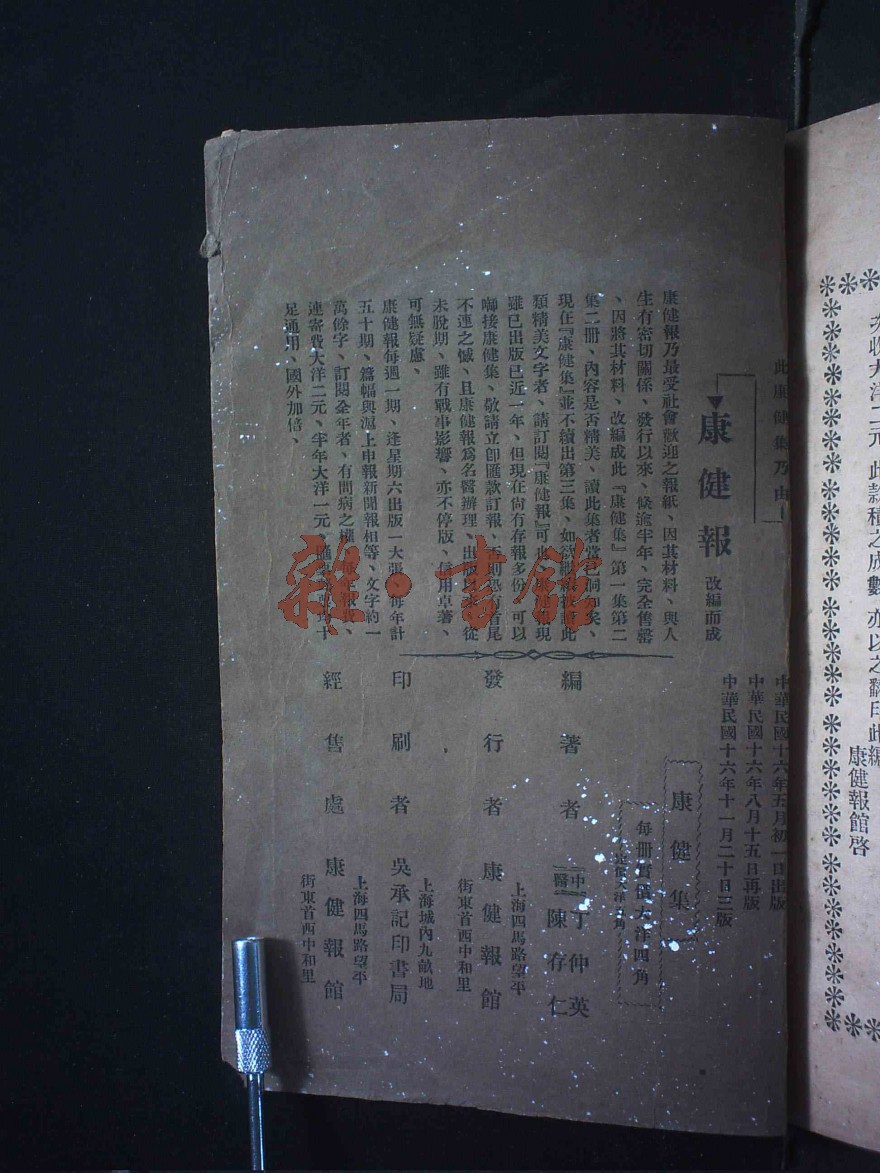 此康健集乃由
康健報 改編而成
康健報乃最受社會歡迎之報紙、因其材料、與人
生有密切關係、發行以來、倏逾半年、完全售罄
、因將其材料、改編成此『康健集』第一集第二
集二冊、內容是否精美、讀此集者當已洞知矣、
現在『康健集』並不續出第三集、如欲繼續
類精美文字者、請訂閱『康健報』可也、現
雖已出版已近一年、但現在尙有存報多份、可以
啣接康健集、敬請立卽匯款訂報、否則恐有首尾
不連之憾、且康健報爲名醫辦理、出版以來、從
未脫期、雖有戰事影響、亦不停版、信用卓著、
可無疑慮、
康健報每週一期、逢星期六出版一大張、每年計
五十期、篇幅與滬上申報新聞報相等、文字約一
萬餘字、訂閱全年者、有問病之權
連寄費大洋二元、半年大洋一元
足通用、國外加倍、
中華民國十六年五月初一日出版
中華民國十六年八月十五日再版
中華民國十六年十一月二十日三版
康健集
每冊實價大洋四角
編著者 中醫 丁仲英 陳存仁
發行者 康健報館
上海四馬路望平
街東首西中和里
印刷者 吳承記印書局
上海城內九畝地
經售處 康健報館
上海四馬路望平
街東首西中和里
雜·書館
收大洋二元 此款積之成數 亦以之翻印此編
康健報館啓